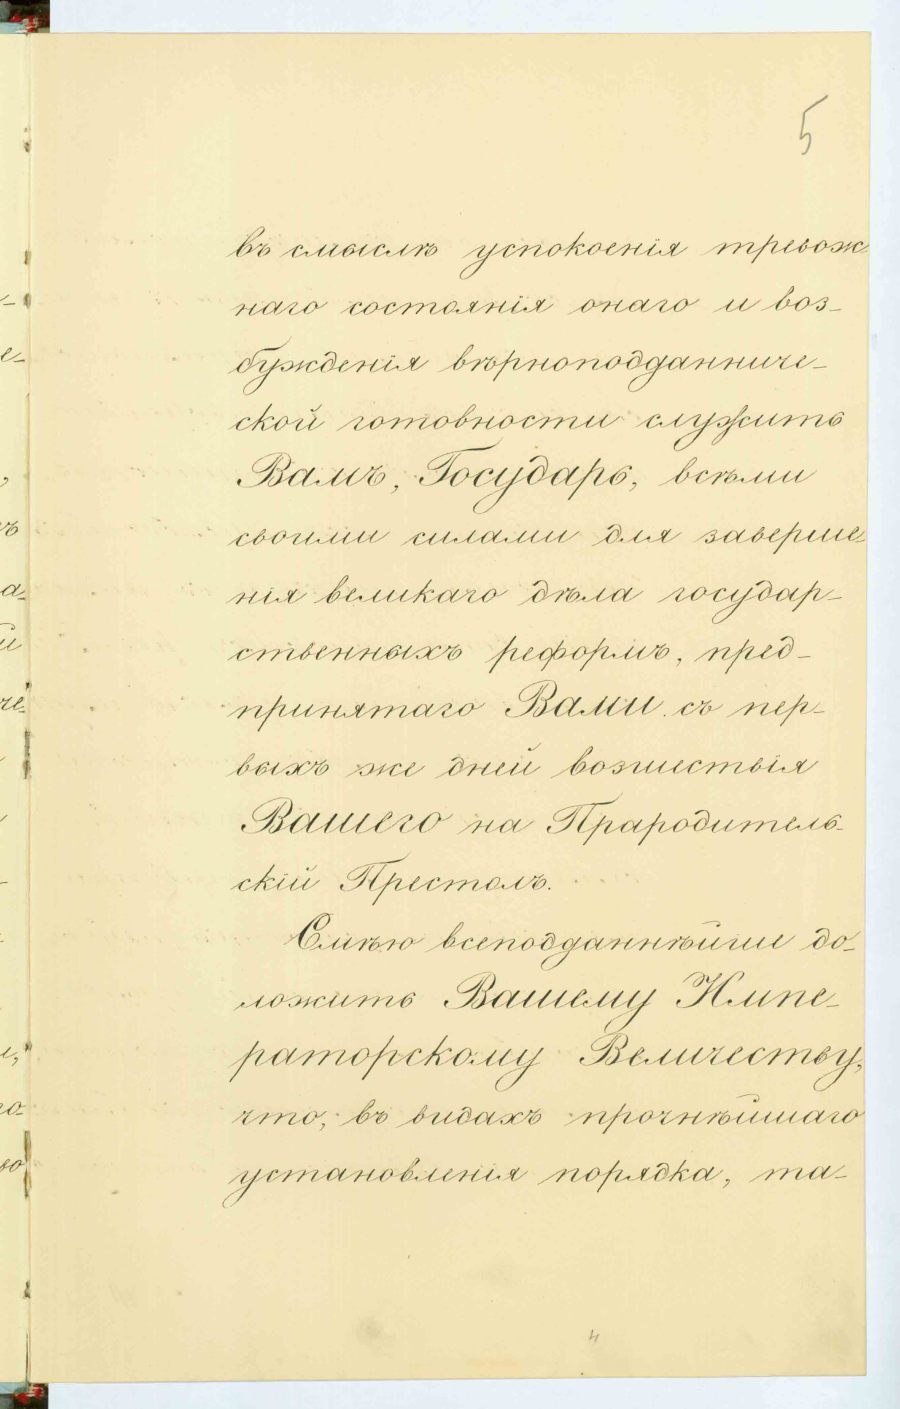 5
въ смыслѣ успокоенія тревож
наго состоянія онаго и воз-
бужденія вѣрноподданниче-
ской готовности служить
Вамъ, Государь, всѣми
своими силами для заверше-
нія великаго дѣла государ-
ственныхъ реформъ, пред-
принятаго Вами съ пер-
выхъ же дней возшествія
Вашего на Прародитель-
скій Престолъ.
Смѣю всеподданнѣйше до-
ложить Вашему Импе-
раторскому Величеству,
что, въ видахъ прочнѣйшаго
установленія порядка, та-